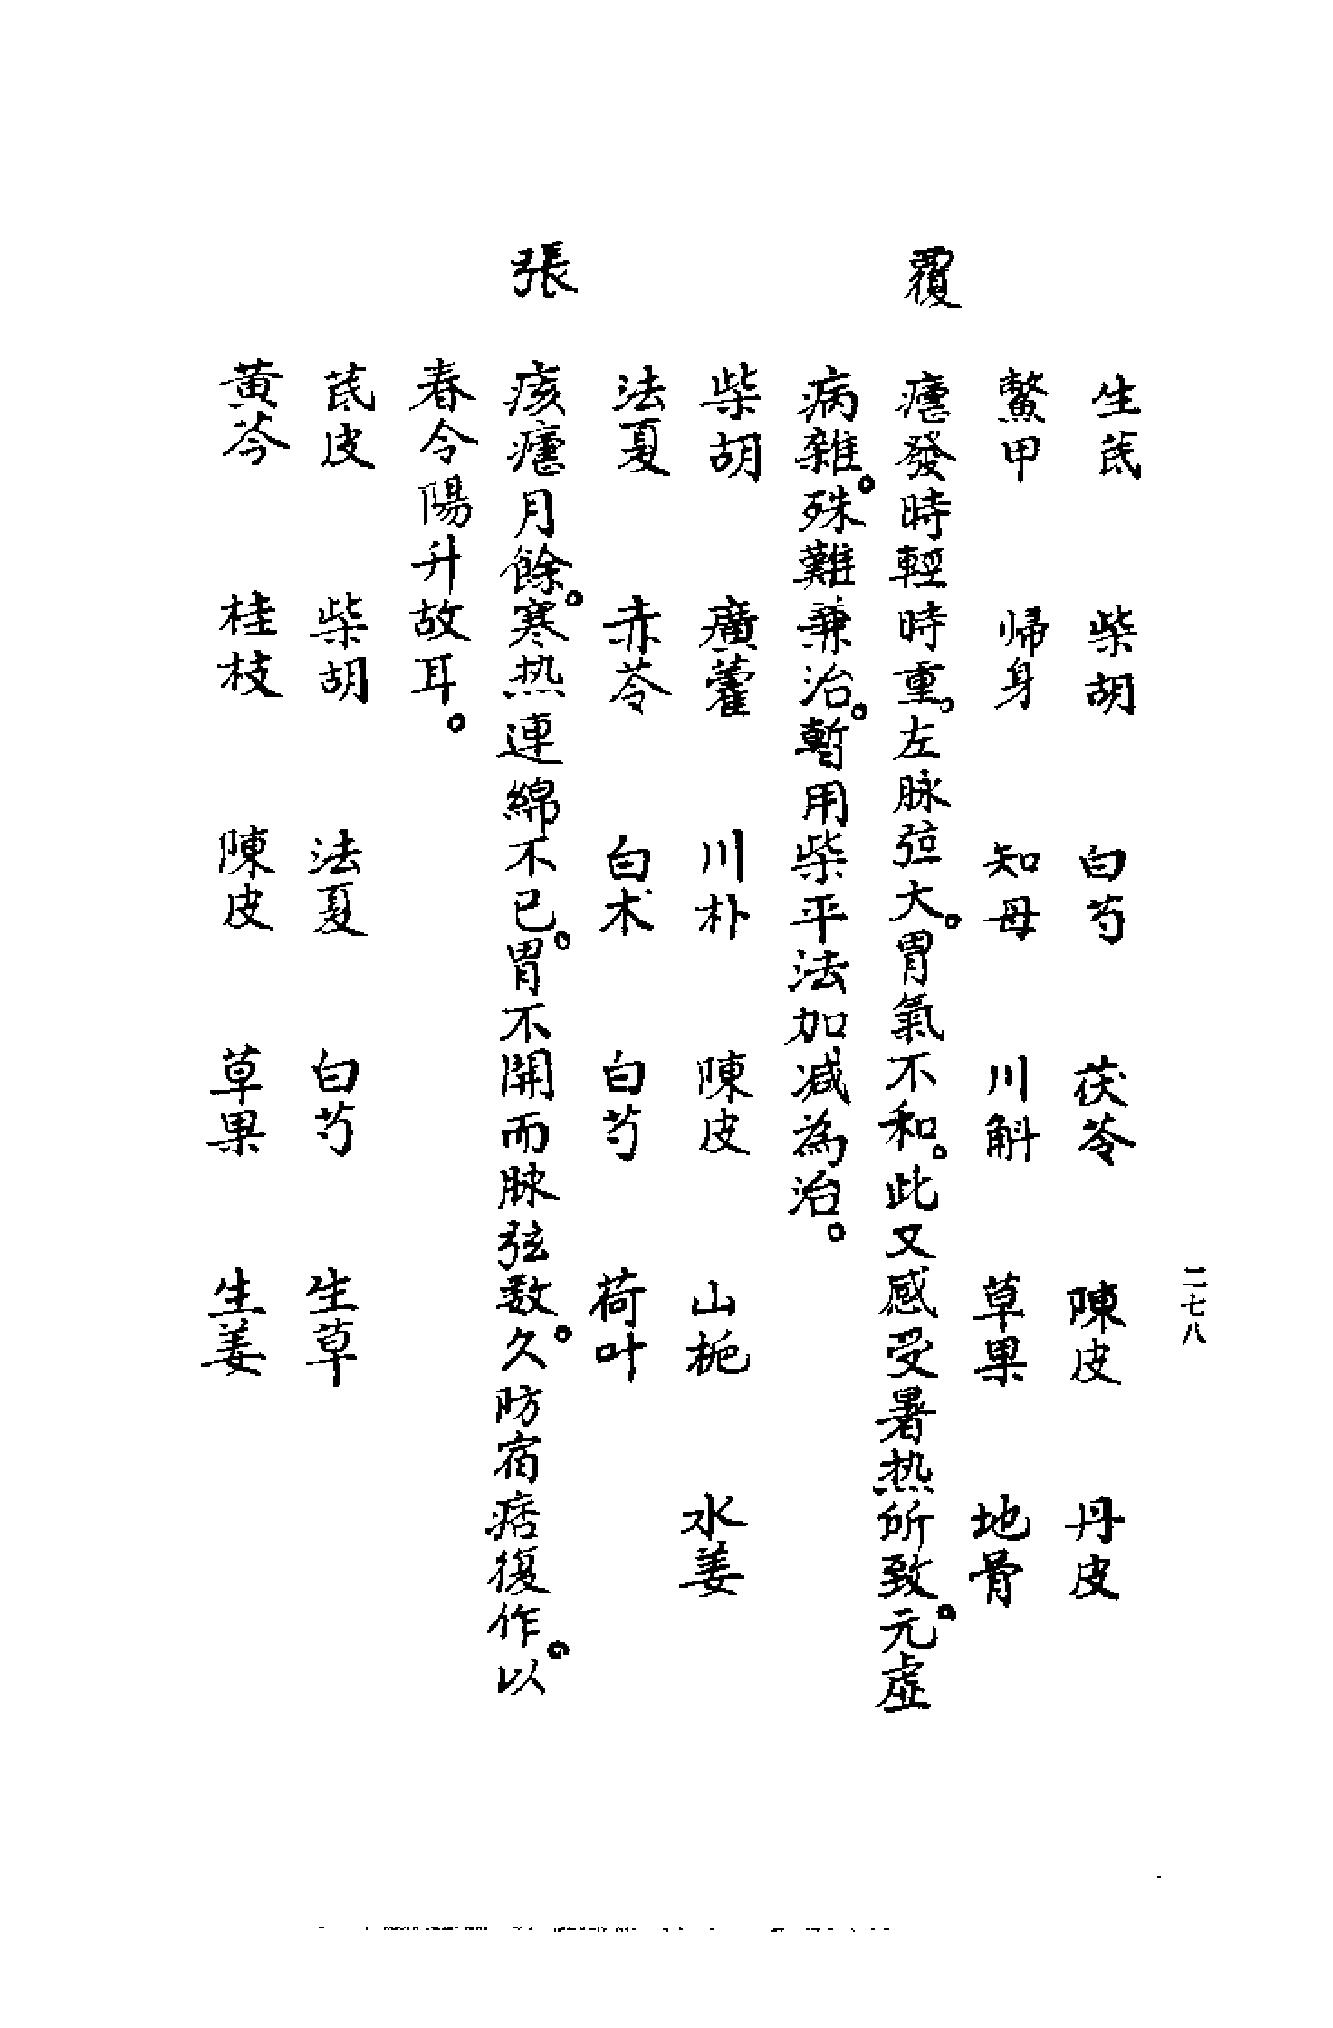 二七八
生芪　柴胡　白芍　茯苓　陳皮　丹皮
鱉甲　帰身　知母　川斛　草果　地骨
覆　瘧發時輕時重。左脉弦大。胃氣不和。此又感受暑热所致。元虛
病雜。殊難兼治。暫用柴平法加减為治。
柴胡　廣藿　川朴　陳皮　山栀　水姜
法夏　赤苓　白术　白芍　荷叶
張　痎瘧月餘。寒热連綿不已。胃不開而脉弦数。久防宿痞復作。以
春令陽升故耳。
芪皮　柴胡　法夏　白芍　生草
黄芩　桂枝　陳皮　草果　生姜